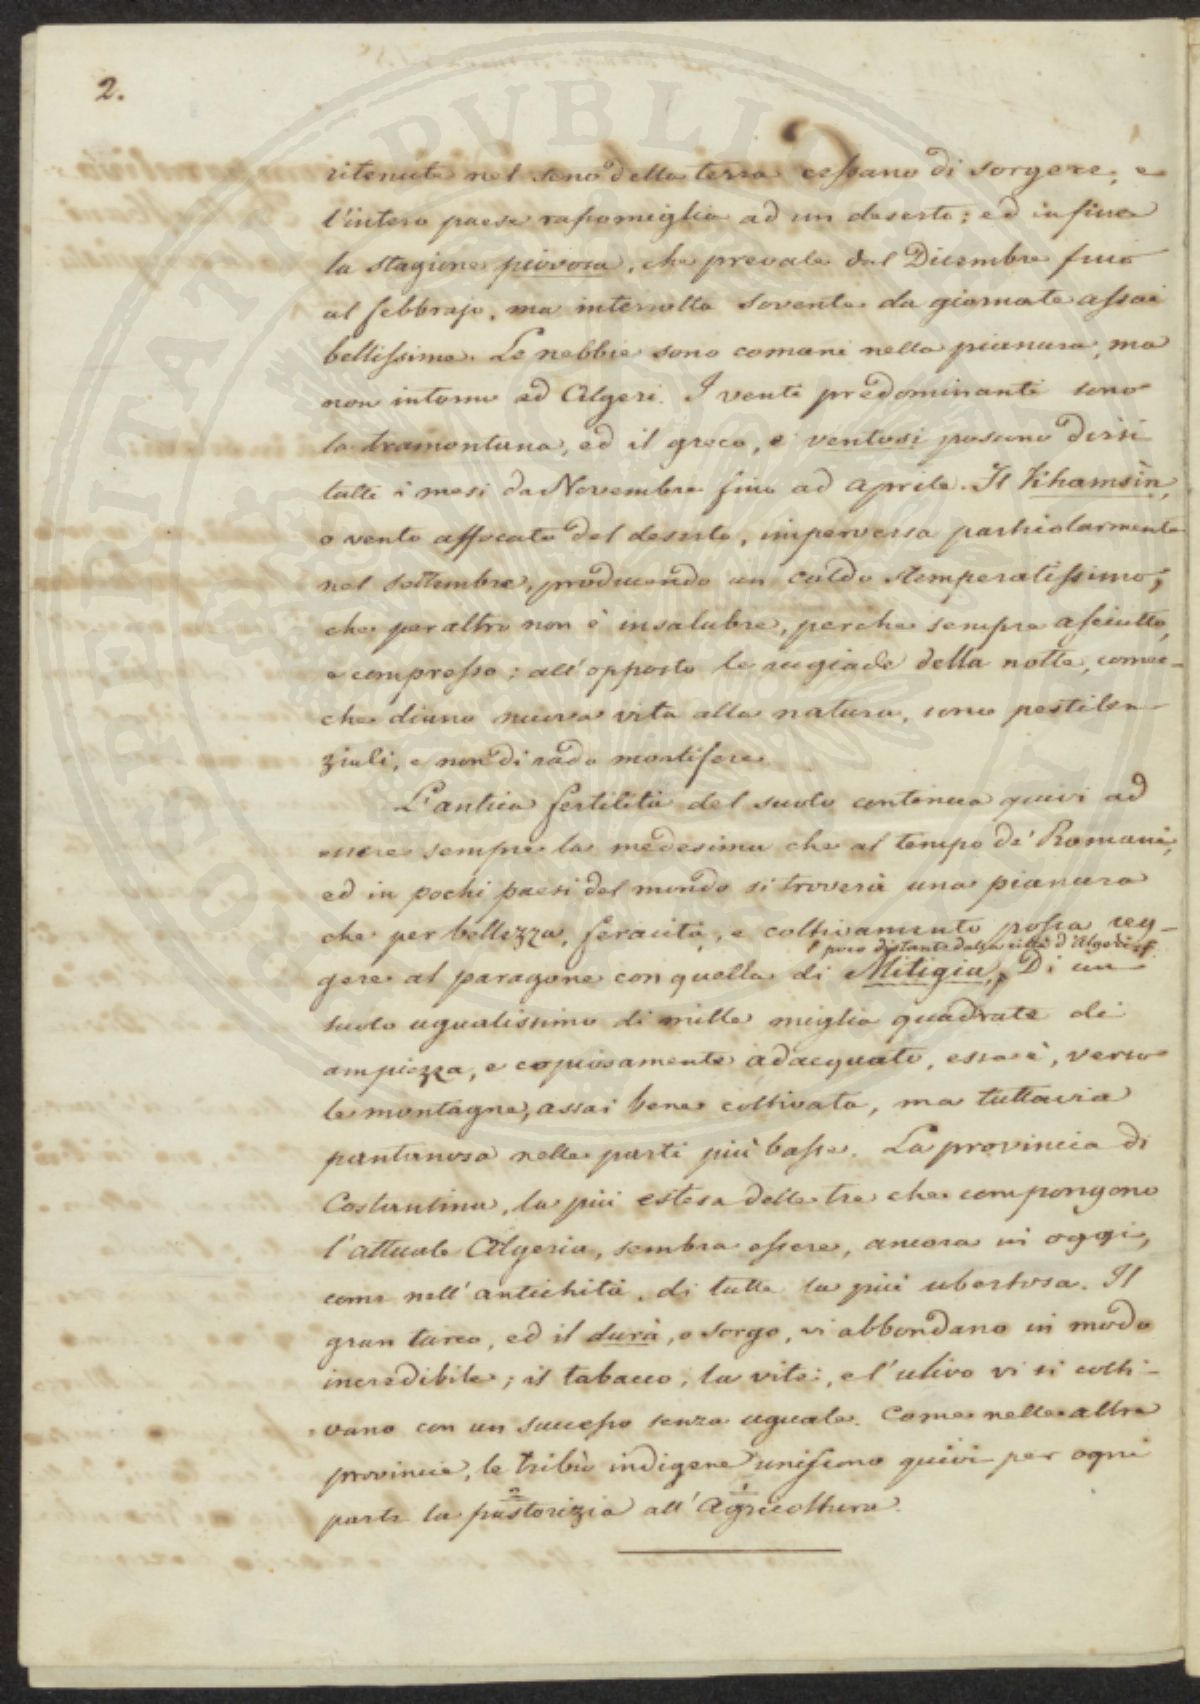 2.
ritenute nel seno della terra cessano di sorgere, e
l'intero paese rassomiglia ad un deserto; ed infine
la stagione piovosa, che prevale dal Dicembre fino
al febbrajo, ma interrotta sovente da giornate assai
bellissime. Le nebbie sono comuni nella pianura, ma
non intorno ad Algeri. I venti predominanti sono
la tramontana, ed il greco, e ventosi possono dirsi
tutti i mesi da Novembre fino ad Aprile. Il Khamsìn,
o vento affocato del deserto, imperversa particolarmente
nel settembre, producendo un caldo stemperatissimo,
che per altro non è insalubre, perche sempre asciutto,
e compresso: all'opposto le rugiade della notte, comec-
che diano nuova vita alla natura, sono pestilen-
ziali, e non di rado mortifere.
L'antica fertilità del suolo continua quivi ad
essere sempre la medesima che al tempo de' Romani,
ed in pochi paesi del mondo si troverà una pianura
che per bellezza, feracità, e coltivamento possa reg-
poco distante dalla città d'Algeri
gere al paragone con quella di Mitigia, Di un
suolo ugualissimo di mille miglia quadrate di
ampiezza, e copiosamente adacquato, essa è, verso
le montagne, assai bene coltivata, ma tuttavia
pantanosa nelle parti più basse. La provincia di
Costantina, la più estesa delle tre che compongono
l'attuale Algeria, sembra essere, ancora in oggi,
come nell'antichità, di tutte la più ubertosa. Il
gran turco, ed il durà, o sorgo, vi abbondano in modo
incredibile; il tabacco, la vite, e l'ulivo vi si colti-
vano con un successo senza uguale. Come nelle altre
provincie, le tribù indigene uniscono quivi per ogni
2 1
parte la pastorizia all'Agricoltura.